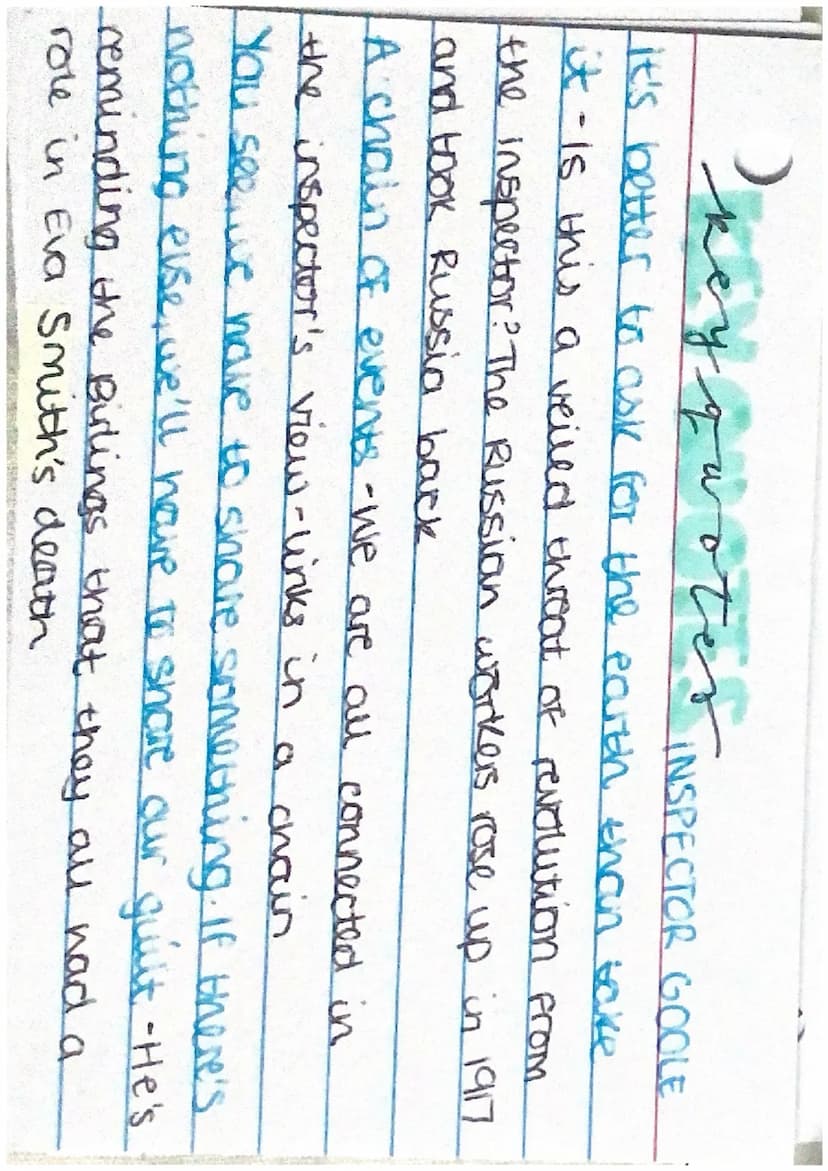 KEY QUOTES
key quotes
INSPECTOR GOOLE
It's better to ask for the earth than take
it - Is this a veiled threat of revolution from
the inspector? The Russian workers rose up in 1917
and took Russia back
A chain of events - We are all connected in
the inspector's view - links in a chain
You see, we have to share something. If there's
nothing else, we'll have to share our guilt - He's
reminding the Birlings that they all had a
role in Eva Smith's death